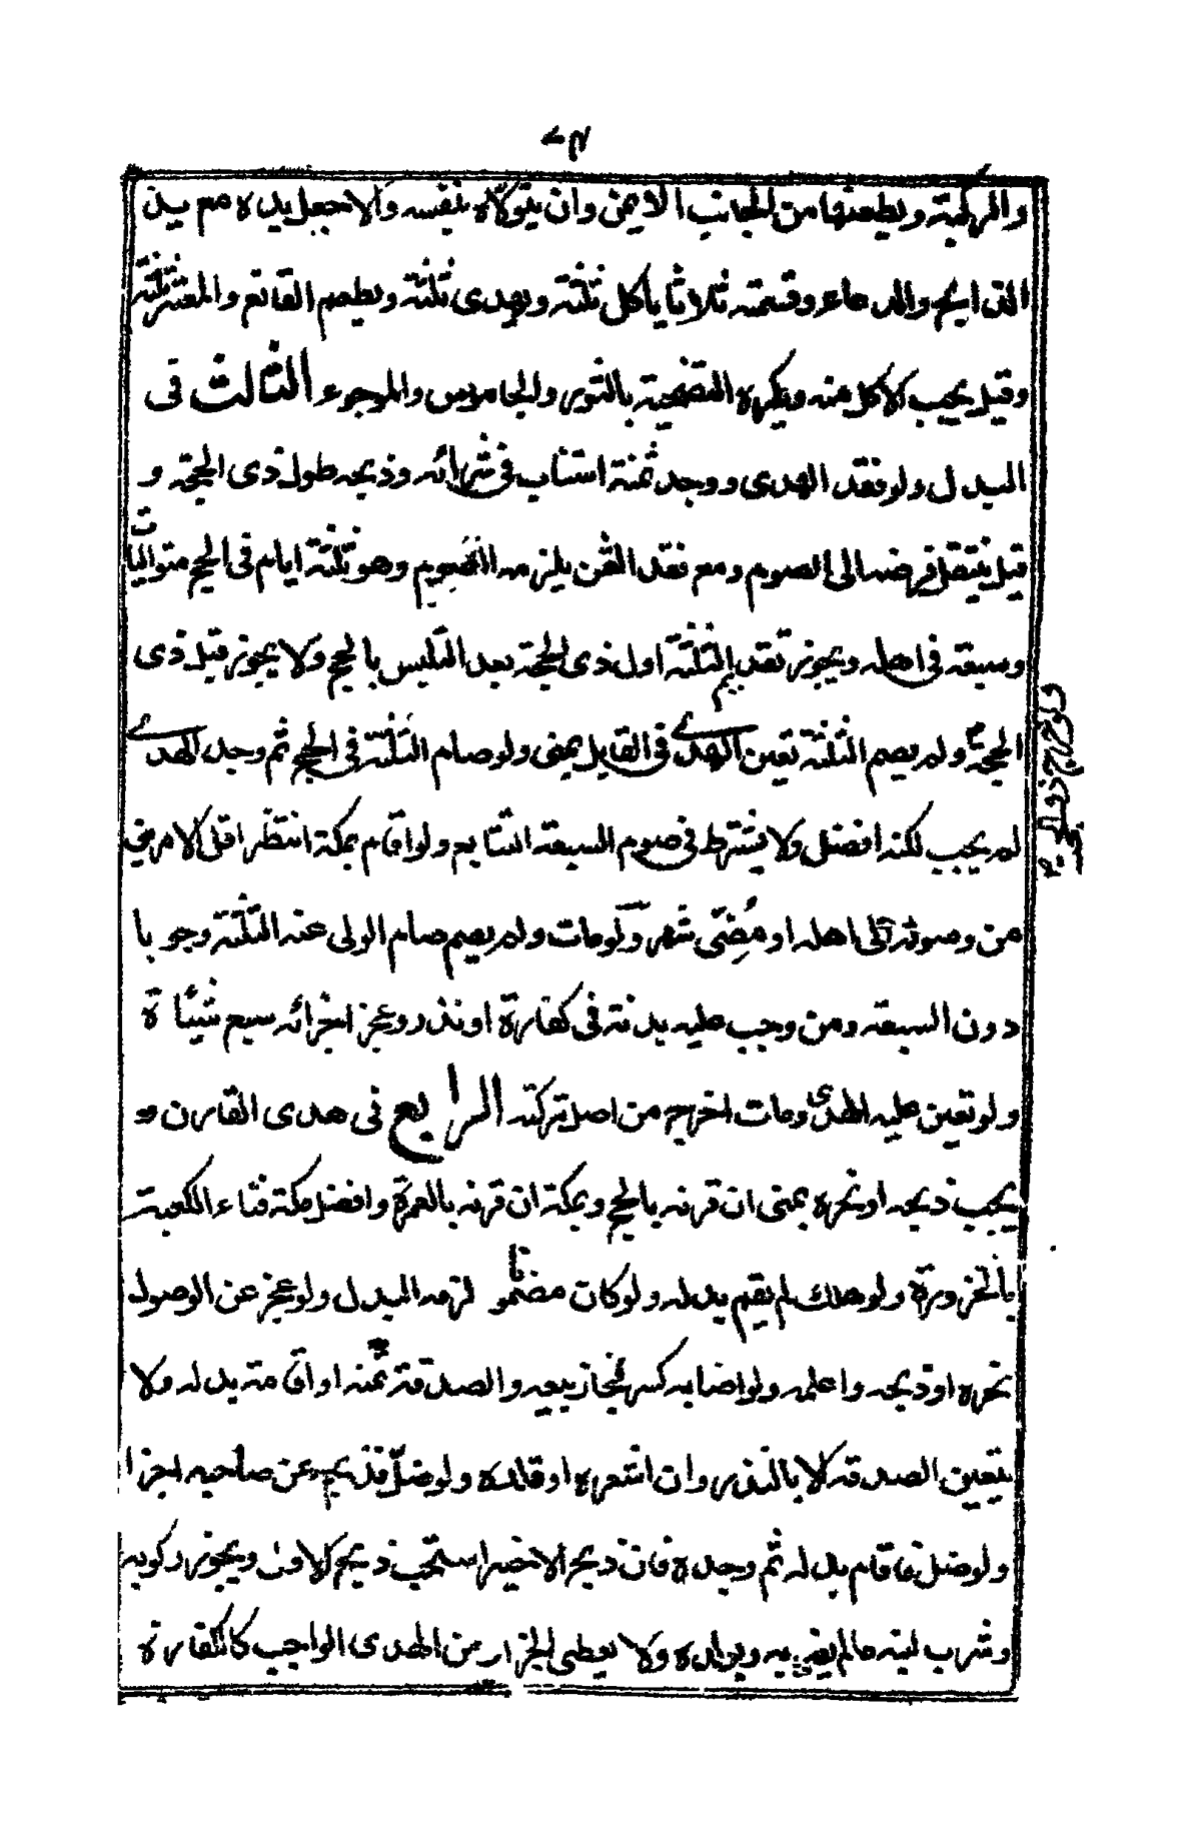 ٧٣
والركبة ويطعنها من الجانب الايمن وان يتولاه بنفسه والا جعل يده مع يد
الذابح والدعاء وقسمته ثلاثا ياكل ثلثه ويهدى ثلثه ويطعم القانع والمعتر ثلثه
وقيل يجب الاكل منه ويكره التضحية بالثور والجاموس والموجوء الثالث فى
البدل ولو فقد الهدى ووجد ثمنه استناب فى شرائه وذبحه طول ذى الحجة و
قيل ينتقل فرضه الى الصوم ومع فقد الثمن يلزمه الصوم وهو ثلثة ايام فى الحج متواليات
وسبعة فى اهله ويجوز تقديم الثلثة اول ذى الحجة بعد التلبس بالحج ولا يجوز قبل ذى
الحجة ولم يصم الثلثة تعين الهدى فى القابل بمنى ولو صام الثلثة فى الحج ثم وجد الهدى
ولو خرج ذو الحجة
لم يجب لكنه افضل ولا يشترط فى صوم السبعة التتابع ولو اقام بمكة انتظر اقل الامرين
من وصوله الى اهله او مضى شهر ولو مات ولم يصم صام الولى عنه الثلثة وجوبا
دون السبعة ومن وجب عليه بدنة فى كفارة او نذر وعجز اجزائه سبع شياة
ولو تعين عليه الهدى ومات اخرج من اصل تركته الرابع فى هدى القارن و
يجب ذبحه او نحره بمنى ان قرنه بالحج وبمكة ان قرنه بالعمرة وافضل مكة فناء الكعبة
بالحزورة ولو هلك لم يقم بدله ولو كان مضمونا لزمه البدل ولو عجز عن الوصول
نحره او ذبحه واعلمه ولو اصابه كسر جاز بيعه والصدقة بثمنه او اقامة بدله ولا
يتعين الصدقة الا بالنذر وان اشعره او قلده ولو ضل فذبح عن صاحبه اجزا
ولو ضل فاقام بدله ثم وجده فان ذبح الاخير استحب ذبح الاول ويجوز ركوبه
وشرب لبنه مالم يضر به وبولده ولا يعطى الجزار من الهدى الواجب كالكفارة